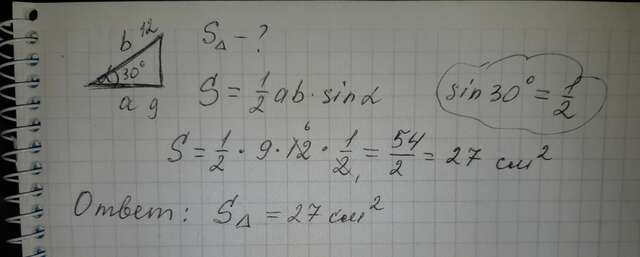 b 12
30°
a 9
S△ - ?
S = 1/2 ab · sin α
sin 30° = 1/2
S = 1/2 · 9 · 12 6 · 1/2 1 = 54/2 = 27 см²
Ответ: S△ = 27 см²